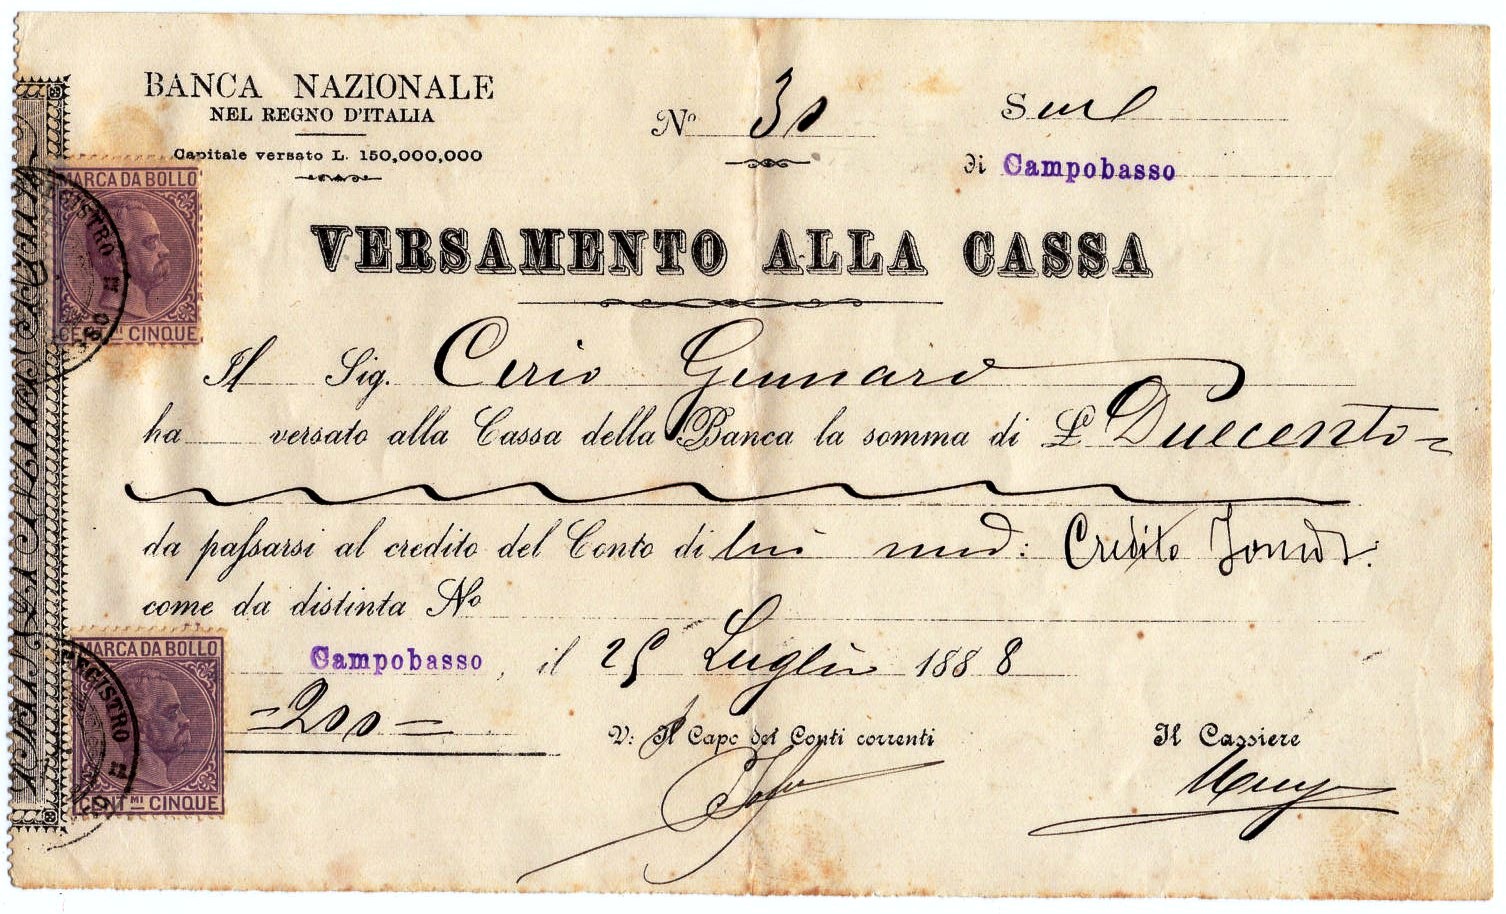 BANCA NAZIONALE
NEL REGNO D'ITALIA
Capitale versato L. 150,000,000
Nº 30
S
di Campobasso
MARCA DA BOLLO
CENT.MI CINQUE
VERSAMENTO ALLA CASSA
Il Sig. Cerio Gennaro
ha versato alla Cassa della Banca la somma di L Duecento
da passarsi al credito del Conto di lui med: Credito Fond:
come da distinta Nº
Campobasso, il 25 Luglio 1888
=200=
V: Il Capo dei Conti correnti
Il Cassiere
MARCA DA BOLLO
CENT.MI CINQUE
REGISTRO